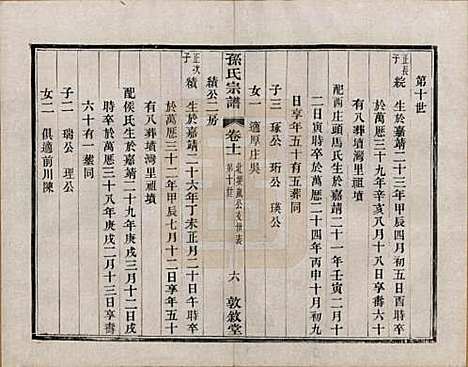 第十世
正長孫
綻 生於嘉靖二十三年甲辰四月初五日酉時卒
於萬歷三十九年辛亥八月十三日享壽六十有八葬墳灣里祖墳
配西庄頭馬氏生於嘉靖二十一年壬寅二月十
二日寅時卒於萬歷二十四年丙申十月初九
日享年五十有五葬同
子三 琛公 珩公 瑛公
女一 適厚庄吳
孫氏宗譜 卷十一 六 敦敘堂
績公二房
正次孫
績 生於嘉靖二十六年丁未正月二十日午時卒
於萬歷三十二年甲辰七月十二日享年五十
有八葬墳灣里祖墳
配侯氏生於嘉靖二十九年庚戌三月十二日戌
時卒於萬歷三十八年庚戌二月十三日享壽
六十有一葬同
子二 瑞公 理公
女二 俱適前川陳